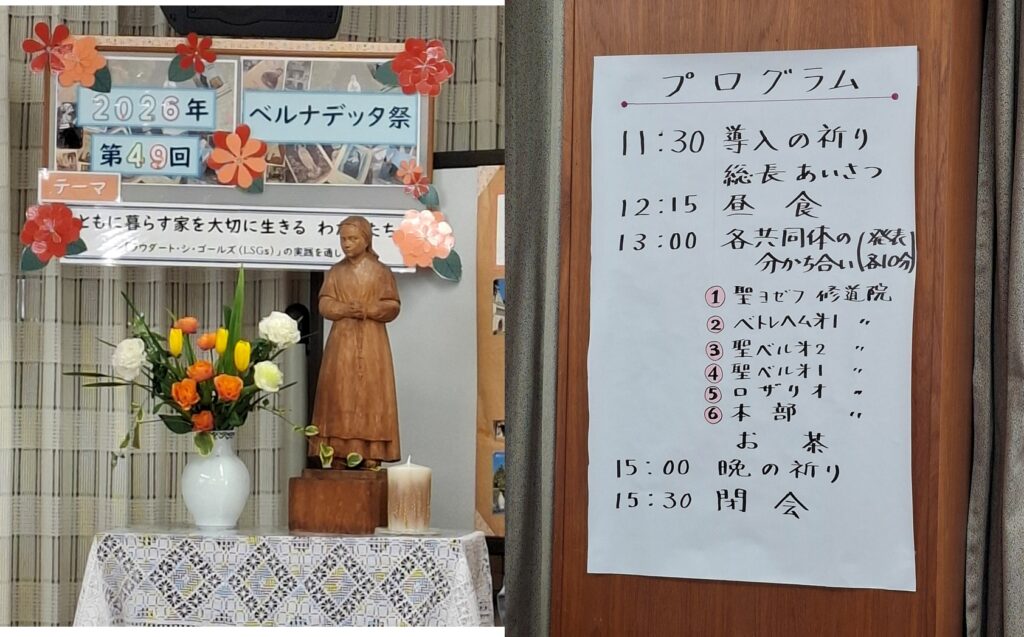 2026年
ベルナデッタ祭
第49回
テーマ
ともに暮らす家を大切に生きる わ
ウダート・シ・ゴールズ(LSGs)」の実践を通し
プログラム
11:30 導入の祈り
総長あいさつ
12:15 昼食
13:00 各共同体の (発表
分かち合い 各10分)
① 聖ヨゼフ 修道院
② ベトレヘム才1 〃
③ 聖ベル才2 〃
④ 聖ベル才1 〃
⑤ ロザリオ 〃
⑥ 本部 〃
お茶
15:00 晩の祈り
15:30 閉会